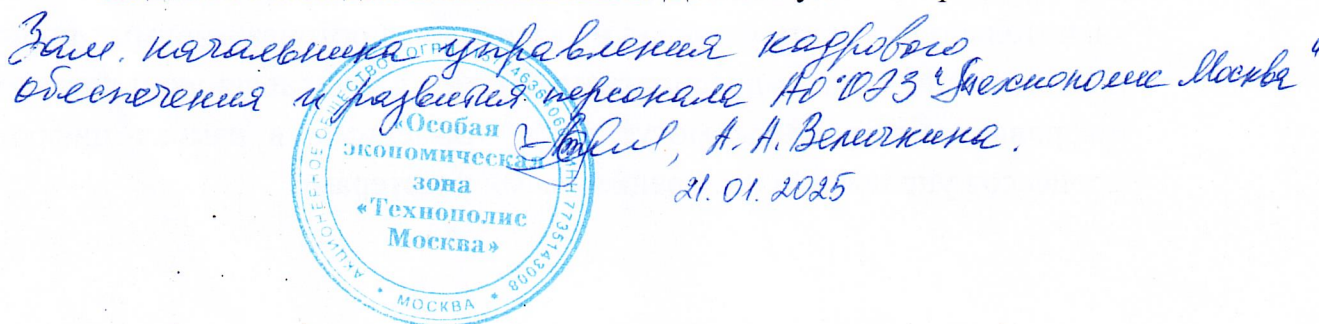 Зам. начальника управления кадрового
обеспечения и развития персонала АО "ОЭЗ "Технополис Москва"
А. А. Величкина.
21.01.2025
«Особая
экономическая
зона
«Технополис
Москва»
АКЦИОНЕРНОЕ ОБЩЕСТВО ОГРН ИНН 7735143008
МОСКВА